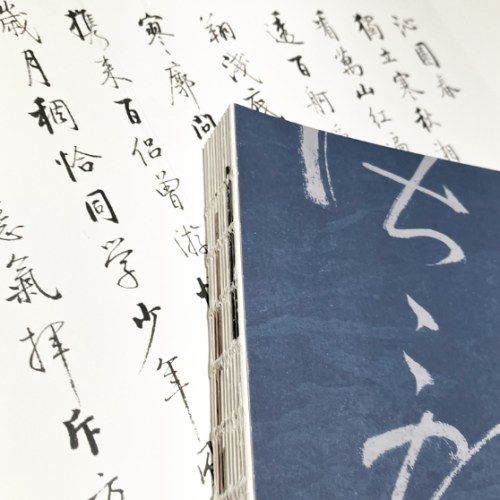 沁園春
獨立寒秋湘
看萬山紅遍
透百舸
翔淺底
寥廓問
携来百侣曾游
歲月稠恰同学少年风
意氣揮斥方